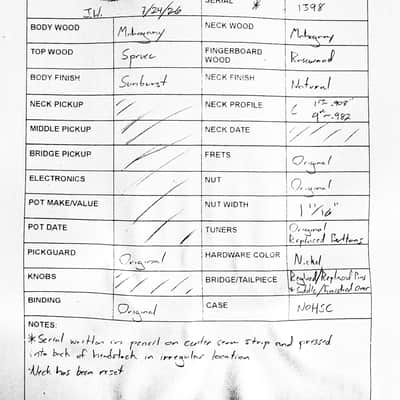 J.H. 7/24/26 SERIAL * 1398
BODY WOOD Mahogany NECK WOOD Mahogany
TOP WOOD Spruce FINGERBOARD WOOD Rosewood
BODY FINISH Sunburst NECK FINISH Natural
NECK PICKUP NECK PROFILE C 1st-.908" 9th-.982
MIDDLE PICKUP NECK DATE
BRIDGE PICKUP FRETS Original
ELECTRONICS NUT Original
POT MAKE/VALUE NUT WIDTH 1 11/16"
POT DATE TUNERS Original Replaced Buttons
PICKGUARD Original HARDWARE COLOR Nickel
KNOBS BRIDGE/TAILPIECE Reglued/Replaced Pins + Saddle/Finished Over
BINDING Original CASE NOHSC
NOTES:
*Serial written in pencil on center seam strip and pressed
into back of headstock in irregular location
-Neck has been reset